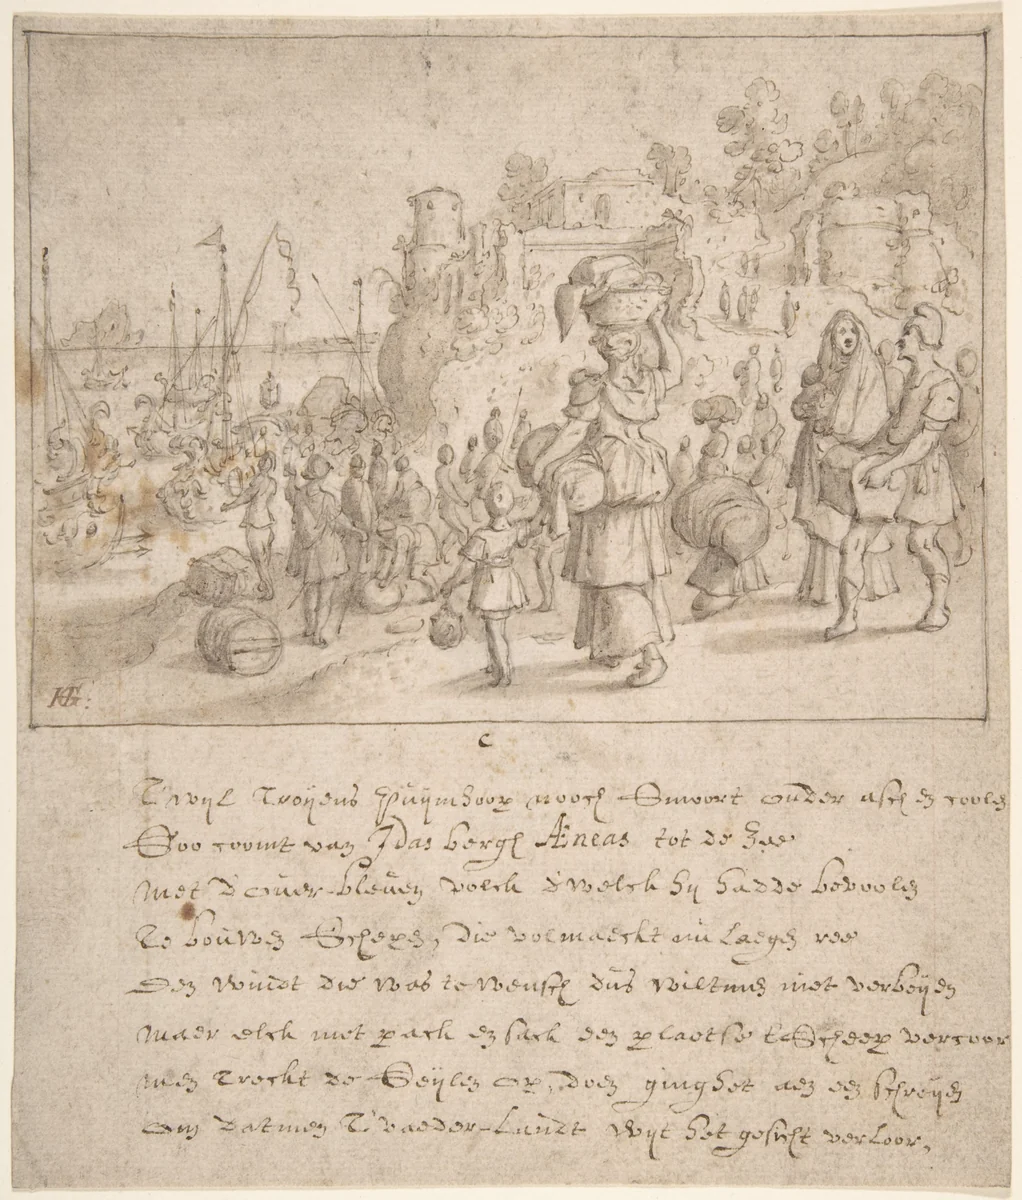 HG:
C
T'wyl Troyens Puijmhoop nooch Smoort onder asch en coolen
Soo coomt van Idas bergh Æneas tot de Zee
Met d'over-bleven volck d'welck hy hadde bevoolen
Te bouwen Schepen, die volmaeckt nu laegen ree
Den windt die was te wensch dus wiltmen niet verbeyden
Maer elck met pack en sack een plaetse t'Scheep vercoor
Men Treckt de Seylen op, doen gingh het aen een schreyen
Om datmen T'vaeder-Landt wyt het gesicht verloor,